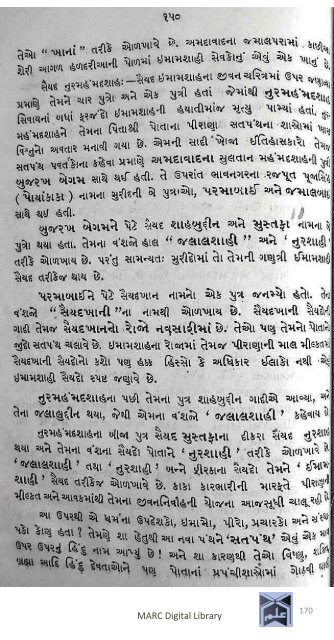 ૧૫૦
તેઓ "ખાનાં" તરીકે ઓળખાવે છે. અમદાવાદના જમાલપરામાં કાછીઆ
શેરી આગળ હળદરીઆની પોળમાં ઇમામશાહી સેવકોનું એવું એક ખાનું છે.
સૈયદ નુરમહંમદશાહ:—સૈયદ ઇમામશાહના જીવન ચરિત્રમાં ઉપર જણાવ્યા
પ્રમાણે તેમને ચાર પુત્રો અને એક પુત્રી હતાં જેમાંથી નુરમહંમદશાહ
સિવાયનાં બધાં ફરજંદો ઇમામશાહની હયાતીમાંજ મૃત્યુ પામ્યાં હતાં,
મહંમદશાહને તેમના પિતાશ્રી પોતાના પીરાણા સતપંથના શાસ્ત્રોમાં
વિષ્ણુનો અવતાર મનાવી ગયા છે. એમની સાદી ખોજા ઇતિહાસકારો તેમજ
સતપંથ પ્રવર્તકોના કહેવા પ્રમાણે અમદાવાદના સુલતાન મહંમદશાહની પુત્રી
બુજરખ બેગમ સાથે થઈ હતી. તે ઉપરાંત ભાવનગરના રજપૂત પૂજાસિંહ
(પોયાંકાકા) નામના મુરીદની બે પુત્રીઓ, પરમાબાઈ અને જમલબાઈ
સાથે થઈ હતી.
બુજરખ બેગમને પેટે સૈયદ શાહબુદ્દીન અને મુસ્તફા નામના બે
પુત્રો થયા હતા. તેમના વંશજો હાલ "જલાલશાહી" અને 'નુરશાહી'
તરીકે ઓળખાય છે. પરંતુ સામન્યતઃ મુરીદોમાં તો તેમની ગણત્રી ઇમામશાહી
સૈયદ તરીકેજ થાય છે.
પરમાબાઈને પેટે સૈયદખાન નામનો એક પુત્ર જનમ્યો હતો. તેના
વંશજો "સૈયદખાની"ના નામથી ઓળખાય છે. સૈયદખાની સૈયદોની
ગાદી તેમજ સૈયદખાનનો રોજો નવસારીમાં છે. તેઓ પણ તેમનો પોતાનો
જુદો સતપંથ ચલાવે છે. ઇમામશાહના રોજામાં તેમજ પીરાણાની માલ મીલકતમાં
સૈયદખાની સૈયદોનો કશો પણ હક્ક હિસ્સો કે અધિકાર ઈલાકો નથી
ઇમામશાહી સૈયદો સ્પષ્ટ જણાવે છે.
નુરમહંમદશાહના પછી તેમના પુત્ર શાહબુદ્દીન ગાદીએ આવ્યા, અને
તેના જલાલુદ્દીન થયા, જેથી એમના વંશજો 'જલાલશાહી' કહેવાય છે.
નુરમહંમદશાહના બીજા પુત્ર સૈયદ મુસ્તફાના દીકરા સૈયદ નુરશાહ
થયા અને તેમના વંશના સૈયદો પોતાને 'નુરશાહી' તરીકે ઓળખાવે છે.
'જલાલશાહી' તથા 'નુરશાહી' બન્ને ફીરકાના સૈયદો તેમને 'ઇમામ
શાહી' સૈયદ તરીકેજ ઓળખાવે છે. કાકા કારભારીની મારફતે પીરાણાની
મીલ્કત અને આવકમાંથી તેમના જીવનનિર્વાહની યોજના આજસુધી ચાલૂ રહી છે.
આ ઉપરથી એ ધર્મના ઉપદેશકો, ઇમામો, પીરો, પ્રચારકો અને
પકો કાણ હતા? તેમણે શા હેતુથી આ નવા પંથને 'સતપંથ' એવું એક
ઉપર ઉપરનું હિંદુ નામ આપ્યું છે! અને શા કારણથી તેઓ વિષ્ણુ, શક્તિ
બ્રહ્મા આદિ હિંદુ દેવતાઓને પણ પોતાનાં પ્રપંચીશાસ્ત્રોમાં ગોઠવી
MARC Digital Library
170